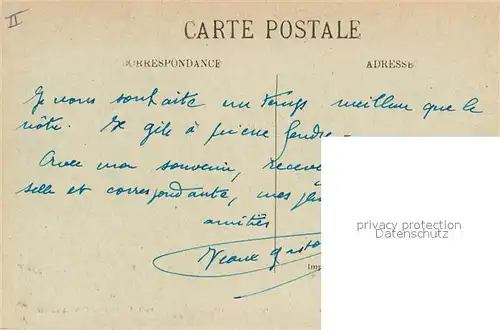 II
CARTE POSTALE
CORRESPONDANCE
ADRESSE
Je vous souhaite un temps meilleur que le
nôtre. Il gèle à pierre fendre -
Avec mon souvenir, recevez
selle et correspondante, mes
amitiés
privacy protection
Datenschutz
Imp